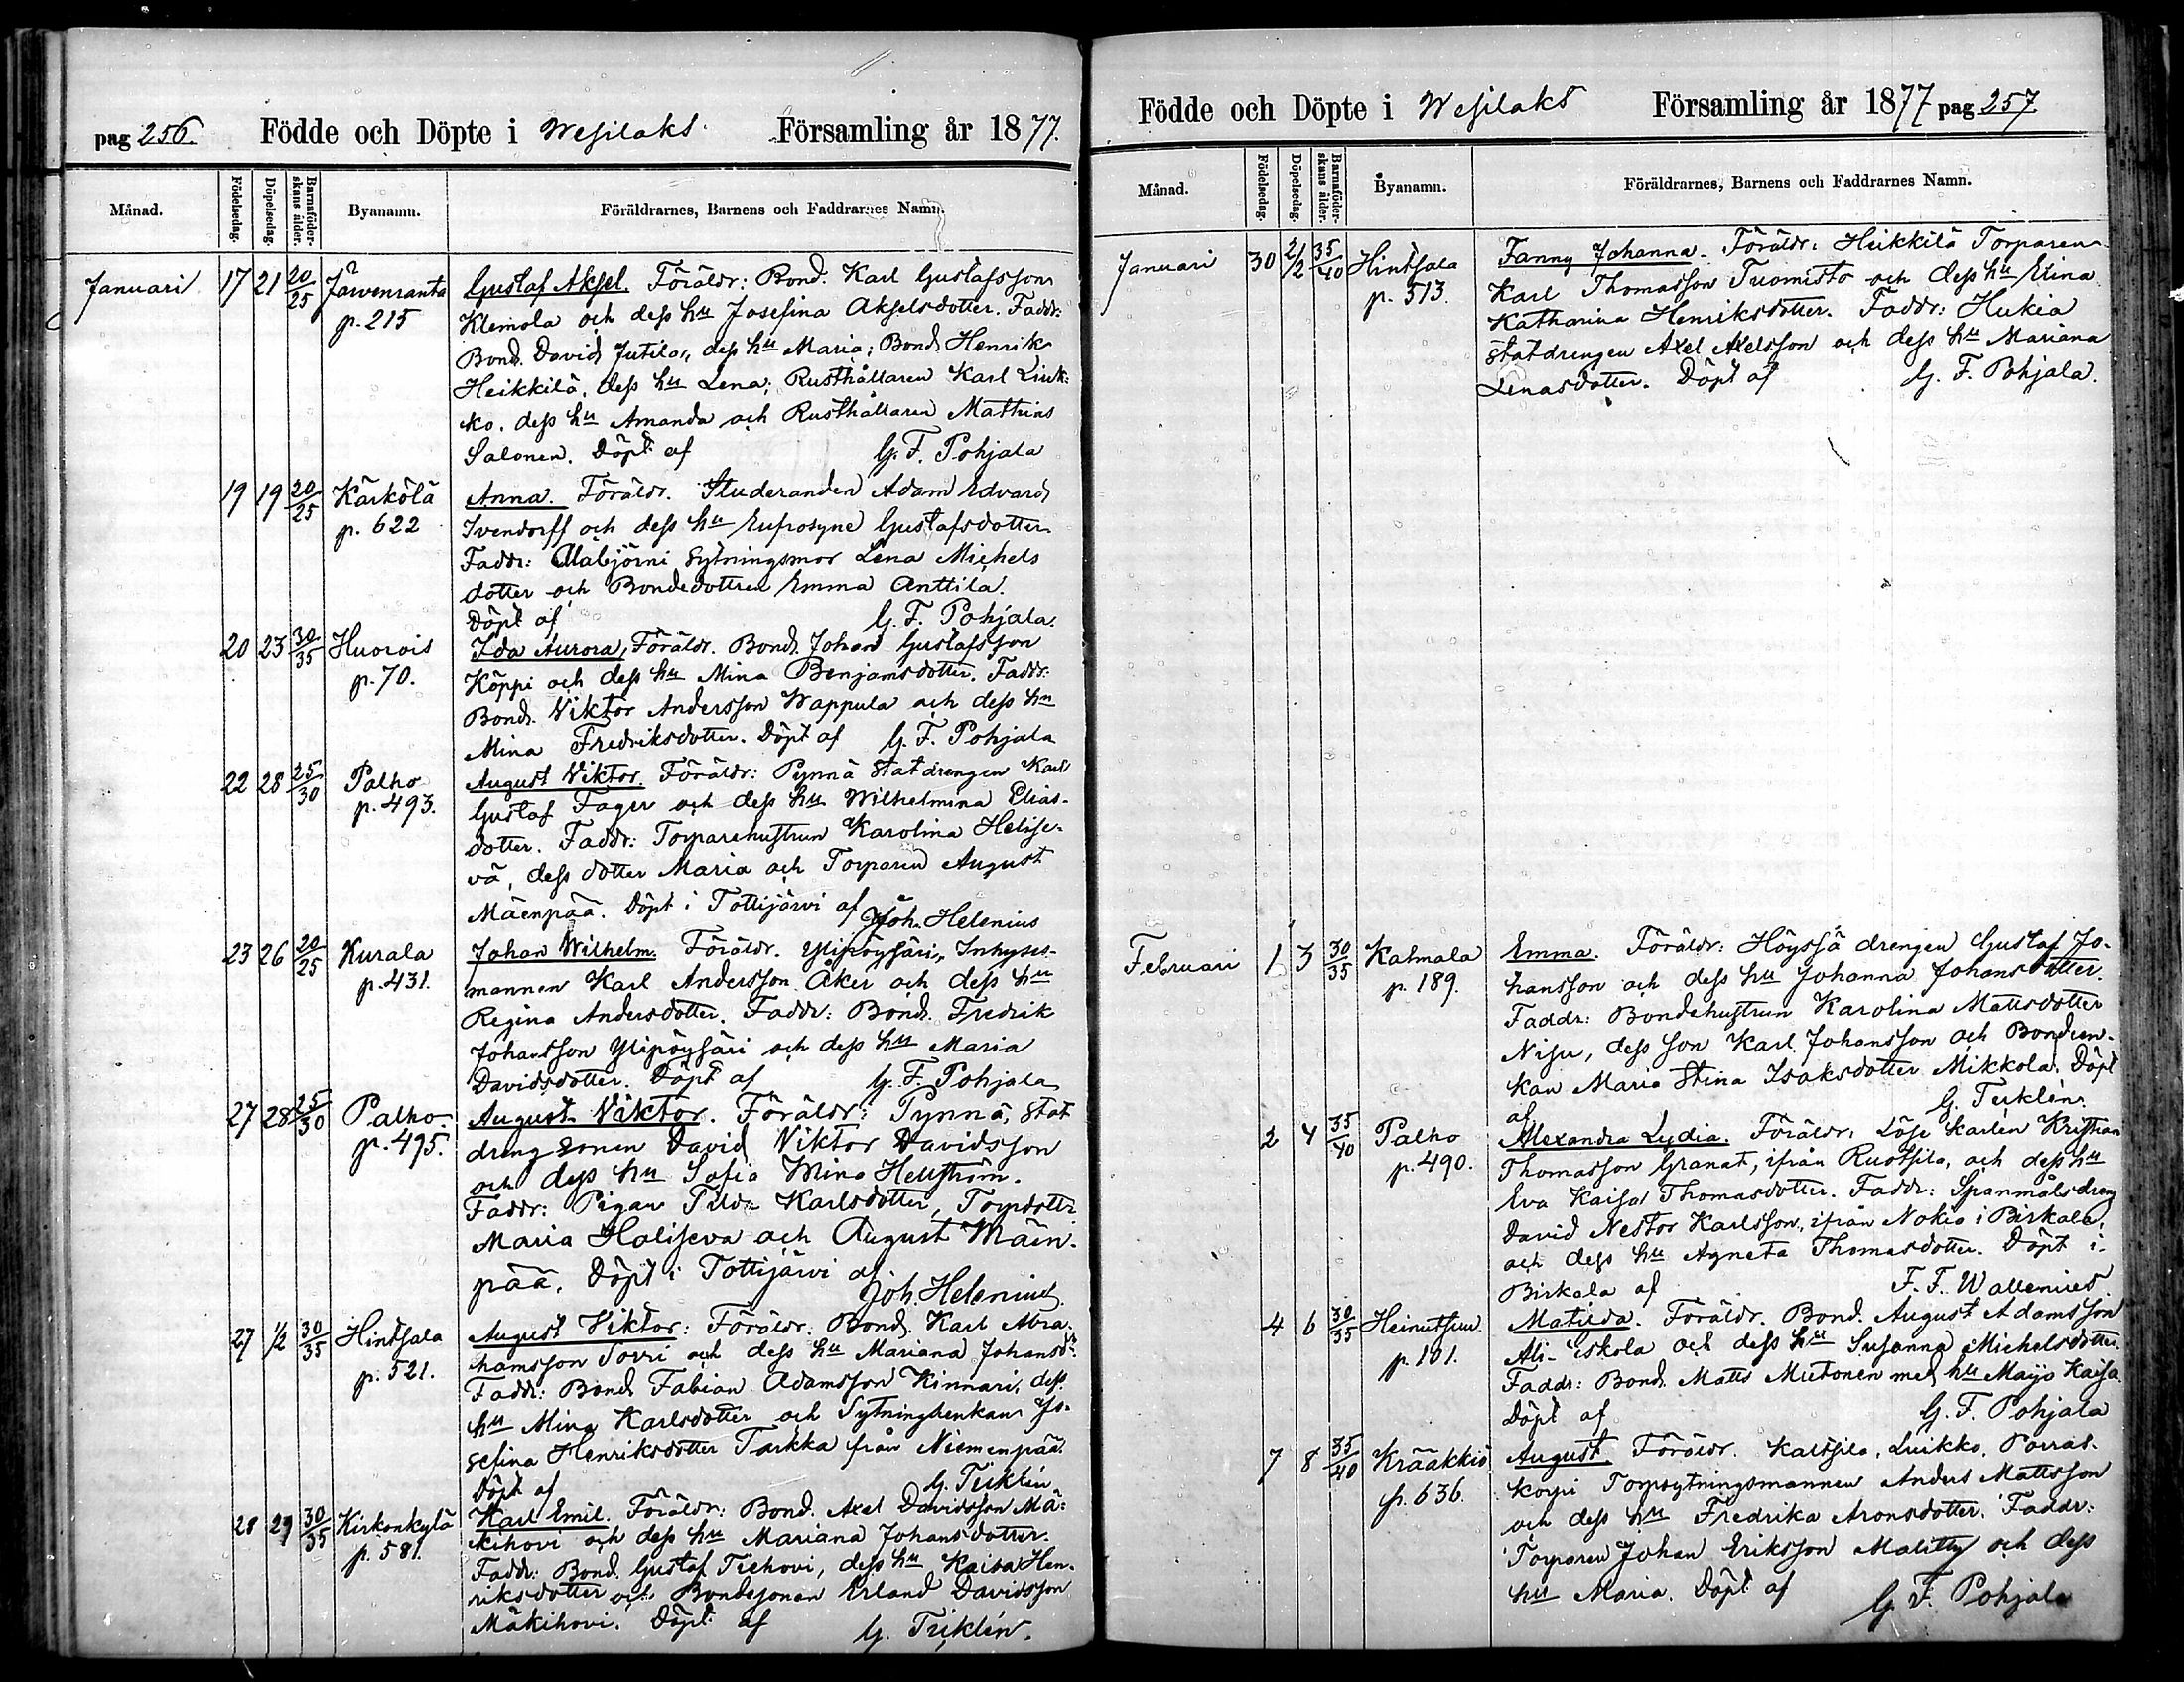 pag 256. Födde och Döpte i Wesilaks. Församling år 1877.
Månad. Födelsedag. Döpelsedag. Barnaföderskans ålder. Byanamn. Föräldrarnes, Barnens och Faddrarnes Namn.
Januari 17 21 20/25 Järvenranta Gustaf Aksel. Föräldr: Bond. Karl Gustafsson
p. 215 Klemola och dess hu Josefina Akselsdotter. Faddr:
Bond. David Jutila, dess hu Maria; Bond. Henrik
Heikkilä, dess hu Lena; Rusthållaren Karl Liuk-
ko, dess hu Amanda och Rusthållaren Mathias
Salonen. Döpt af G. F. Pohjala
19 19 20/25 Kärkölä Anna. Föräldr. Studeranden Adam Edvard
p. 622 Ivendorff och dess hu Eufrosyne Gustafsdotter
Faddr: Alabjörni Sytningsmor Lena Michels
dotter och Bondedottren Emma Anttila.
Döpt af G. F. Pohjala.
20 23 30/35 Huovois Ida Aurora, Föräldr. Bond. Johan Gustafsson
p. 70. Köppi och dess hu Mina Benjamsdotter. Faddr:
Bond. Viktor Andersson Wappula och dess hu
Mina Fredriksdotter. Döpt af G. F. Pohjala
22 28 25/30 Palho August Viktor. Föräldr: Pynnä Statdrengen Karl
p. 493. Gustaf Fager och dess hu Wilhelmina Elias-
dotter. Faddr: Torparehustrun Karolina Helise-
vä, dess dotter Maria och Torparen August
Mäenpää. Döpt i Tottijärvi af Joh. Helenius
23 26 20/25 Kurala Johan Wilhelm. Föräldr. Ylipöysäri, Inhyses-
p. 431. mannen Karl Andersson Åker och dess hu
Regina Andersdotter. Faddr: Bond. Fredrik
Johansson Ylipöysäri och dess hu Maria
Davidsdotter. Döpt af G. F. Pohjala
27 28 25/30 Palho August Viktor. Föräldr: Pynnä, Stat
p. 495. drengsonen David Viktor Davidsson
och dess hu Sofia Mina Hellström.
Faddr: Pigan Tilda Karlsdotter, Torpdottr
Maria Haliseva och August Mäen-
pää. Döpt i Tottijärvi af Joh. Helenius.
27 1/2 30/35 Hintsala August Viktor: Föräldr. Bond. Karl Abra-
p. 521. hamsson Sorri och dess hu Mariana Johansdr.
Faddr: Bond Fabian Adamsson Kinnari, dess
hu Mina Karlsdotter och Sytningsenkan Jo-
sefina Henriksdotter Tarkka från Niemenpää.
Döpt af G. Tiiklén
28 29 30/35 Kirkonkylä Karl Emil. Föräldr: Bond. Axel Davidsson Mä-
p. 581. kihovi och dess hu Mariana Johansdotter.
Faddr: Bond. Gustaf Tiehovi, dess hu Kaisa Hen-
riksdotter och Bondesonen Erland Davidsson
Mäkihovi. Döpt af G. Tiiklén.
Födde och Döpte i Wesilaks Församling år 1877 pag 257
Månad. Födelsedag. Döpelsedag. Barnaföderskans ålder. Byanamn. Föräldrarnes, Barnens och Faddrarnes Namn.
Januari 30 2/2 35/40 Hintsala Fanny Johanna. Föräldr: Heikkilä Torparen
p. 513. Karl Thomasson Tuomisto och dess hu Elina
Katharina Henriksdotter. Faddr: Hukia
Statdrengen Axel Axelsson och dess hu Mariana
Lenasdotter. Döpt af G. F. Pohjala.
Februari 1 3 30/35 Kalmala Emma. Föräldr: Höyssä drengen Gustaf Jo-
p. 189. hansson och dess hu Johanna Johansdotter.
Faddr: Bondehustrun Karolina Mattsdotter
Nisu, dess son Karl Johansson och Bondeen-
kan Maria Stina Isaksdotter Mikkola. Döpt
af G. Tiiklén.
2 4 35/40 Palho Alexandra Lydia. Föräldr. Löse karlen Kristian
p. 490. Thomasson Granat, ifrån Rustsila, och dess hu
Eva Kaisa Thomasdotter. Faddr: Spanmålsdreng
David Nestor Karlsson, ifrån Nokia i Birkala,
och dess hu Agneta Thomasdotter. Döpt i
Birkala af F. F. Wallenius
4 6 30/35 Heinutsuu Matilda. Föräldr. Bond. August Adamsson
p. 101. Ali-Eskola och dess hu Susanna Michelsdotter.
Faddr: Bond. Matts Mutonen med hu Maija Kaisa.
Döpt af G. F. Pohjala
7 8 35/40 Krääkkiö August. Föräldr. Kaltsila, Luikko, Porras-
p. 636. korpi Torpsytningsmannen Anders Mattsson
och dess hu Fredrika Aronsdotter. Faddr:
Torparen Johan Eriksson Mälitty och dess
hu Maria. Döpt af G. F. Pohjala